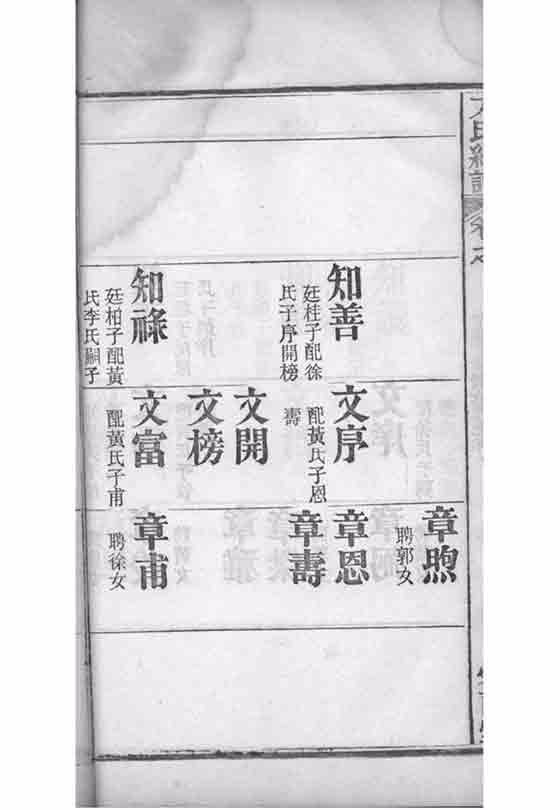 氏總譜
卷之
知善
廷桂子配徐
氏子序開榜
知祿
廷柏子配黃
氏李氏嗣子
文序
配黃氏子恩
壽
文開
文榜
文富
配黃氏子甫
章煦
聘郭女
章恩
章壽
章甫
聘徐女